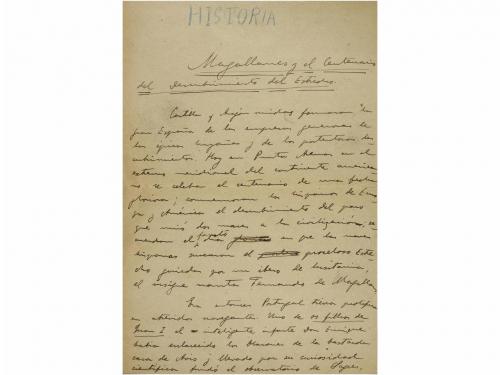 HISTORIA
Magallanes y el Centenario
del Descubrimiento del Estrecho.
Castilla y Aragón unidas formaron la
gran España de las empresas generosas de
las épicas y de los portentosos des-
cubrimientos. Hoy en Punta Arenas en el
extremo meridional del continente america-
no se celebra el centenario de una fecha
gloriosa; conmemoran los hispanos de Euro-
pa y América el descubrimiento del paso
que unió dos mares a la civilización,
el día fausto en que las naves
hispanas surcaron el proceloso Estre-
cho guiadas por un ibero de Lusitania,
el insigne nauta Fernando de Magallan
Era entonces Portugal tierra prolífica
en atrevidos navegantes. Uno de os filhos de
Juan I el inteligente infante Don Enrique
había esclarecido los blasones de la bastarda
casa de Avis y llevado por su curiosidad
científica fundó el observatorio de Sagres,